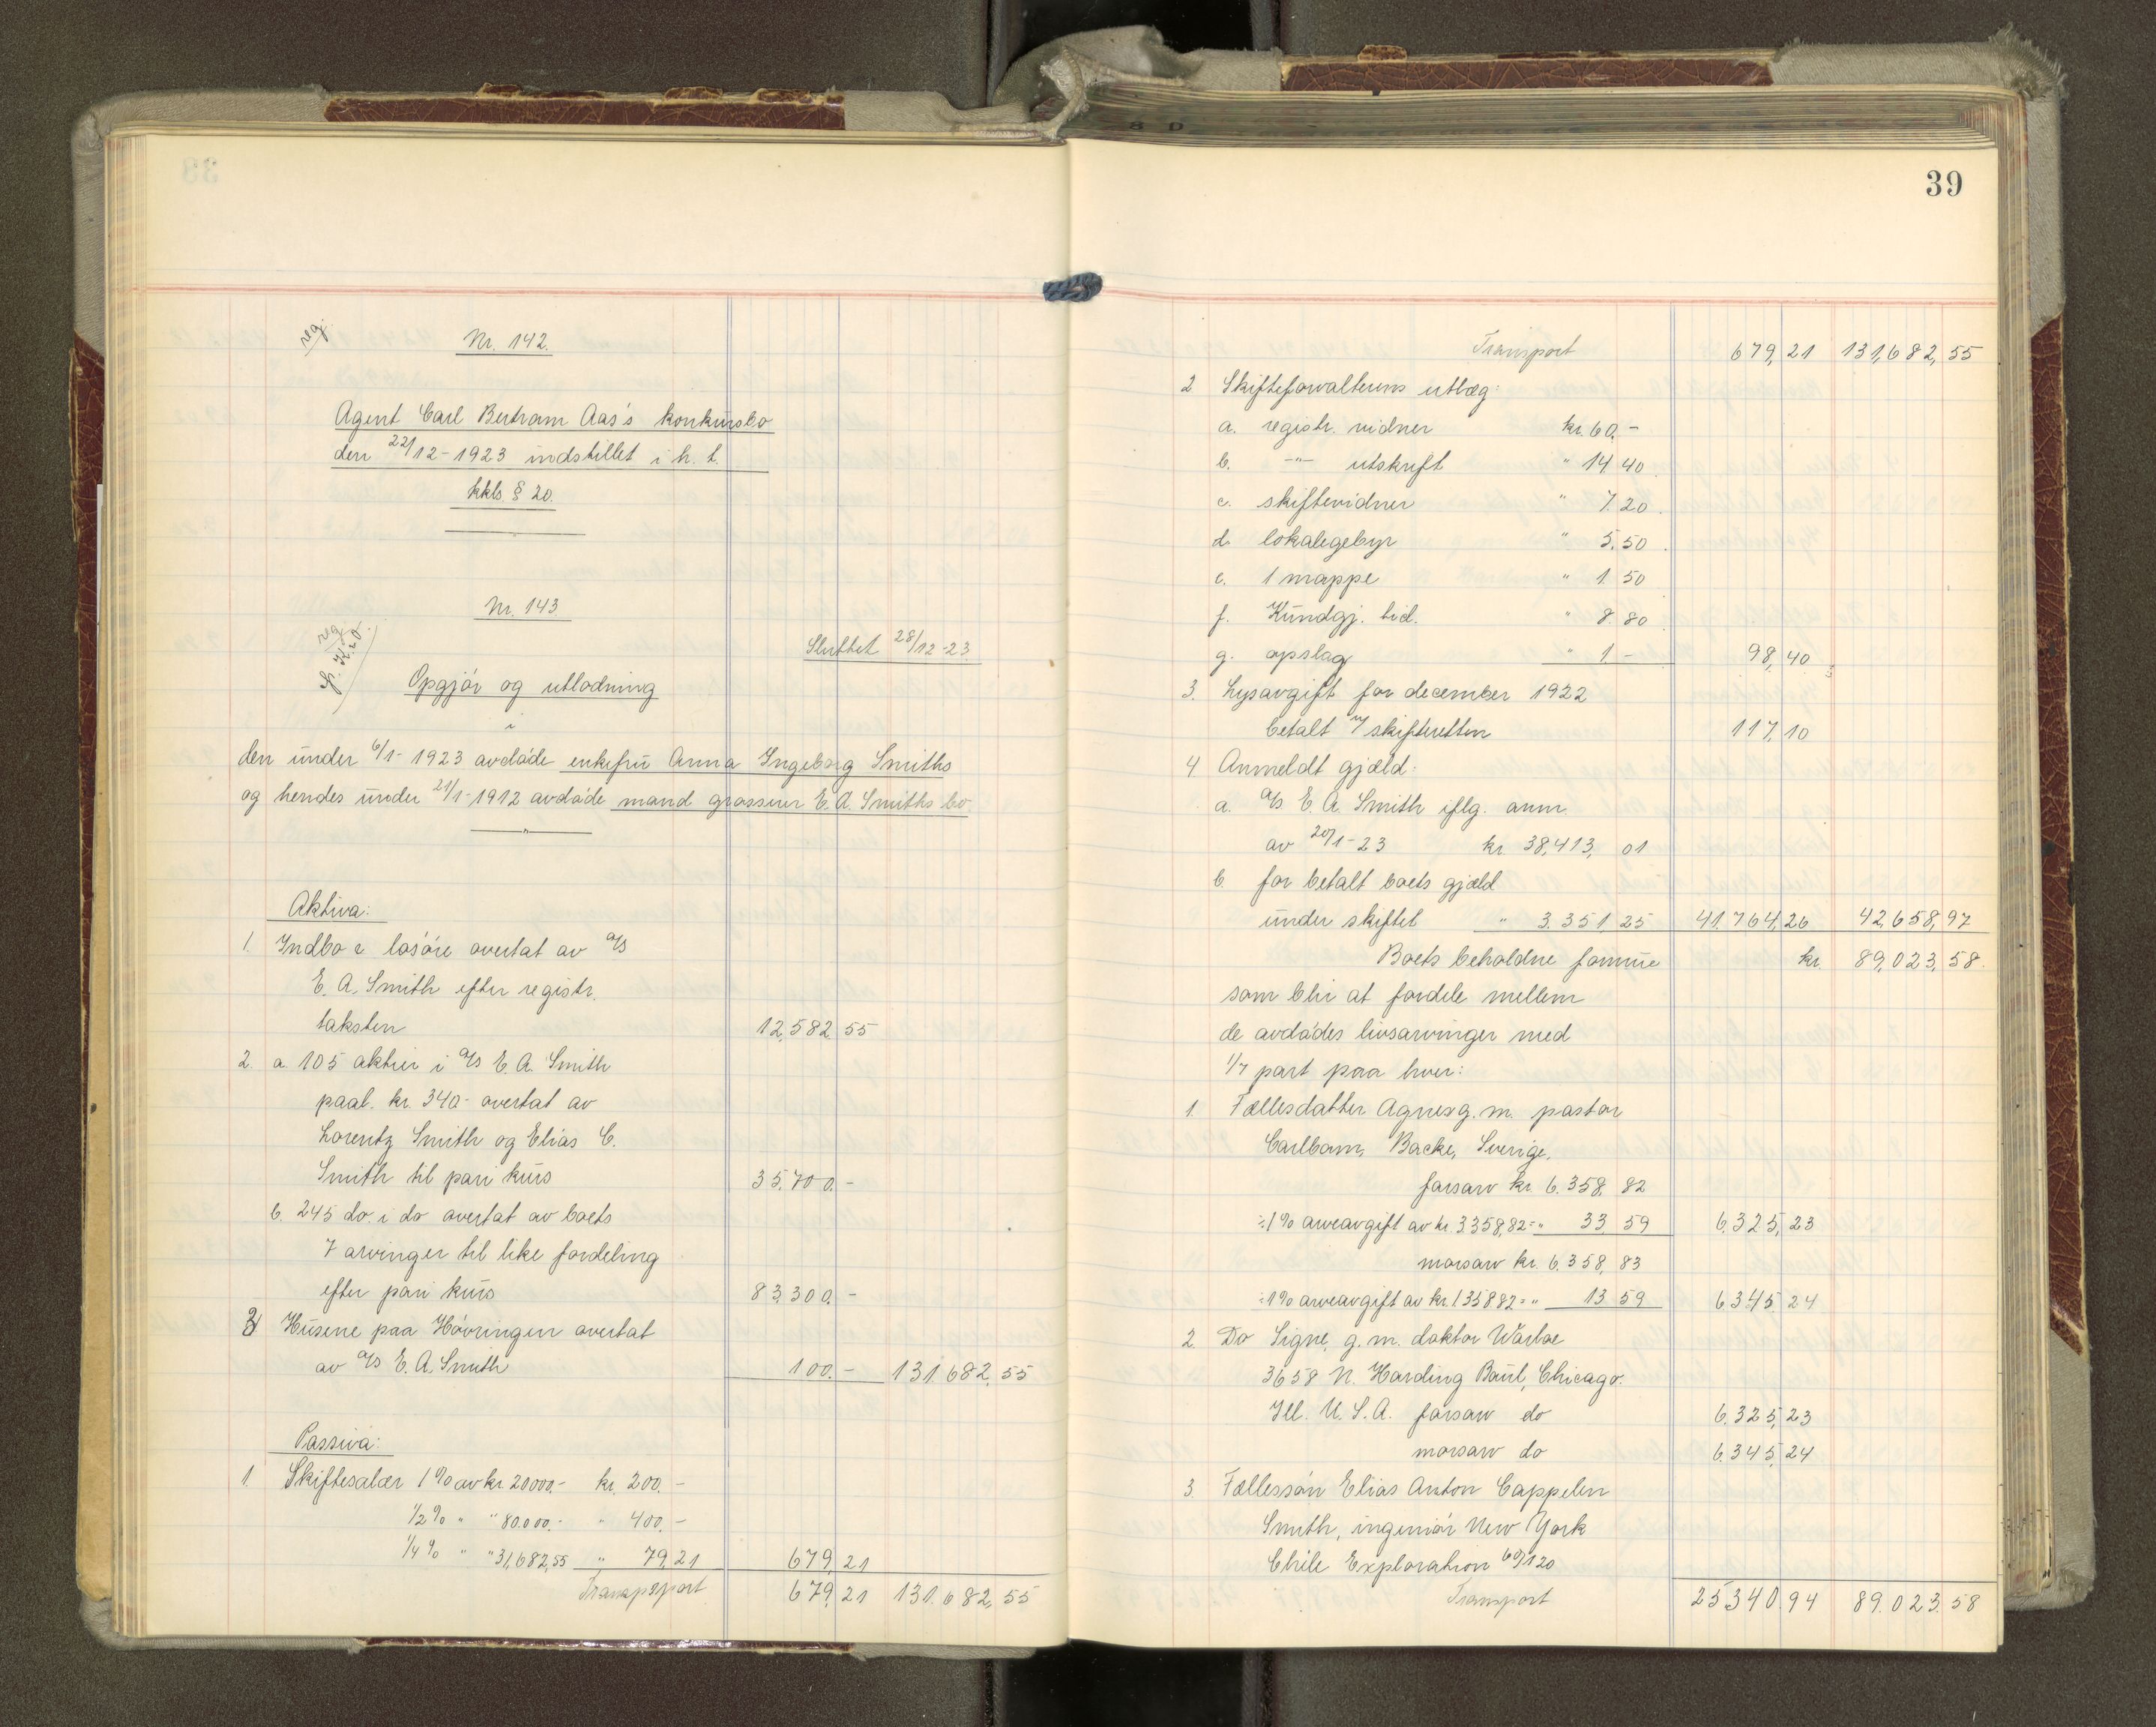 reg
Nr. 142.
Agent Carl Bertram Aas's konkursbo
den 22/12-1923 indstillet i h. t.
kkls. § 20.
Nr. 143
reg
Sluttet 28/12-23.
Opgjör og utlodning
i
den under 6/1-1923 avdøde enkefru Anna Ingeborg Smiths
og hendes under 21/1-1912 avdøde mand grosserer E. A. Smiths bo
Aktiva:
1. Indbo & løsøre overtat av a/s
E. A. Smith efter registr.
taksten 12,582 55
2. a. 105 aktier i a/s E. A. Smith
paal. kr. 340- overtat av
Lorentz Smith og Elias C.
Smith til pari kurs 35,700.-
b. 245 do. i do overtat av boets
7 arvinger til like fordeling
efter pari kurs 83.300.-
3 Husene paa Høvringen overtat
av a/s E. A. Smith 100.- 131.682,55
Passiva:
1. Skiftesalær 1% av kr. 20000.- kr. 200.-
1/2% " " 80.000.- " 400.-
1/4% " " 31,682,55 " 79,21 679,21
Transport 679,21 131.682,55
39
Transport 679,21 131,682,55
2 Skifteforvalterens utlæg:
a. registr. vidner kr. 60.-
b. -"- utskrift " 14,40
c. skiftevidner " 7.20
d. lokalegebyr " 5.50
e. 1 mappe " 1.50
f. Kundgj. tid. " 8.80
g. opslag " 1- 98,40
3. Lysavgift for december 1922
betalt av skifteretten 117,10
4 Anmeldt gjæld:
a. a/s E. A. Smith iflg. anm
av 20/1-23 kr. 38,413, 01
b. for betalt boets gjæld
under skiftet " 3.351 25 41.764,26 42,658,97
Boets beholdne formue kr. 89,023,58.
som blir at fordele mellem
de avdødes livsarvinger med
1/7 part paa hver:
1. Fællesdatter Agnes g. m. pastor
Carlbom, Backe, Sverige.
farsarv kr. 6.358, 82
÷1% arveavgift av kr. 3358,82=" 33 59 6,325,23
morsarv kr. 6.358, 83
÷1% arveavgift av kr. 1.35882=" 13 59 6345,24
2. Do Signe, g. m. doktor Warloe
3658 N. Harding Boul, Chicago.
Ill. U. S. A. farsarv do 6.325,23
morsarv do 6.345,24
3. Fællessøn Elias Anton Cappelen
Smith, ingeniør New York
Chile Exploration 60/120
Transport 25340.94 89.023.58